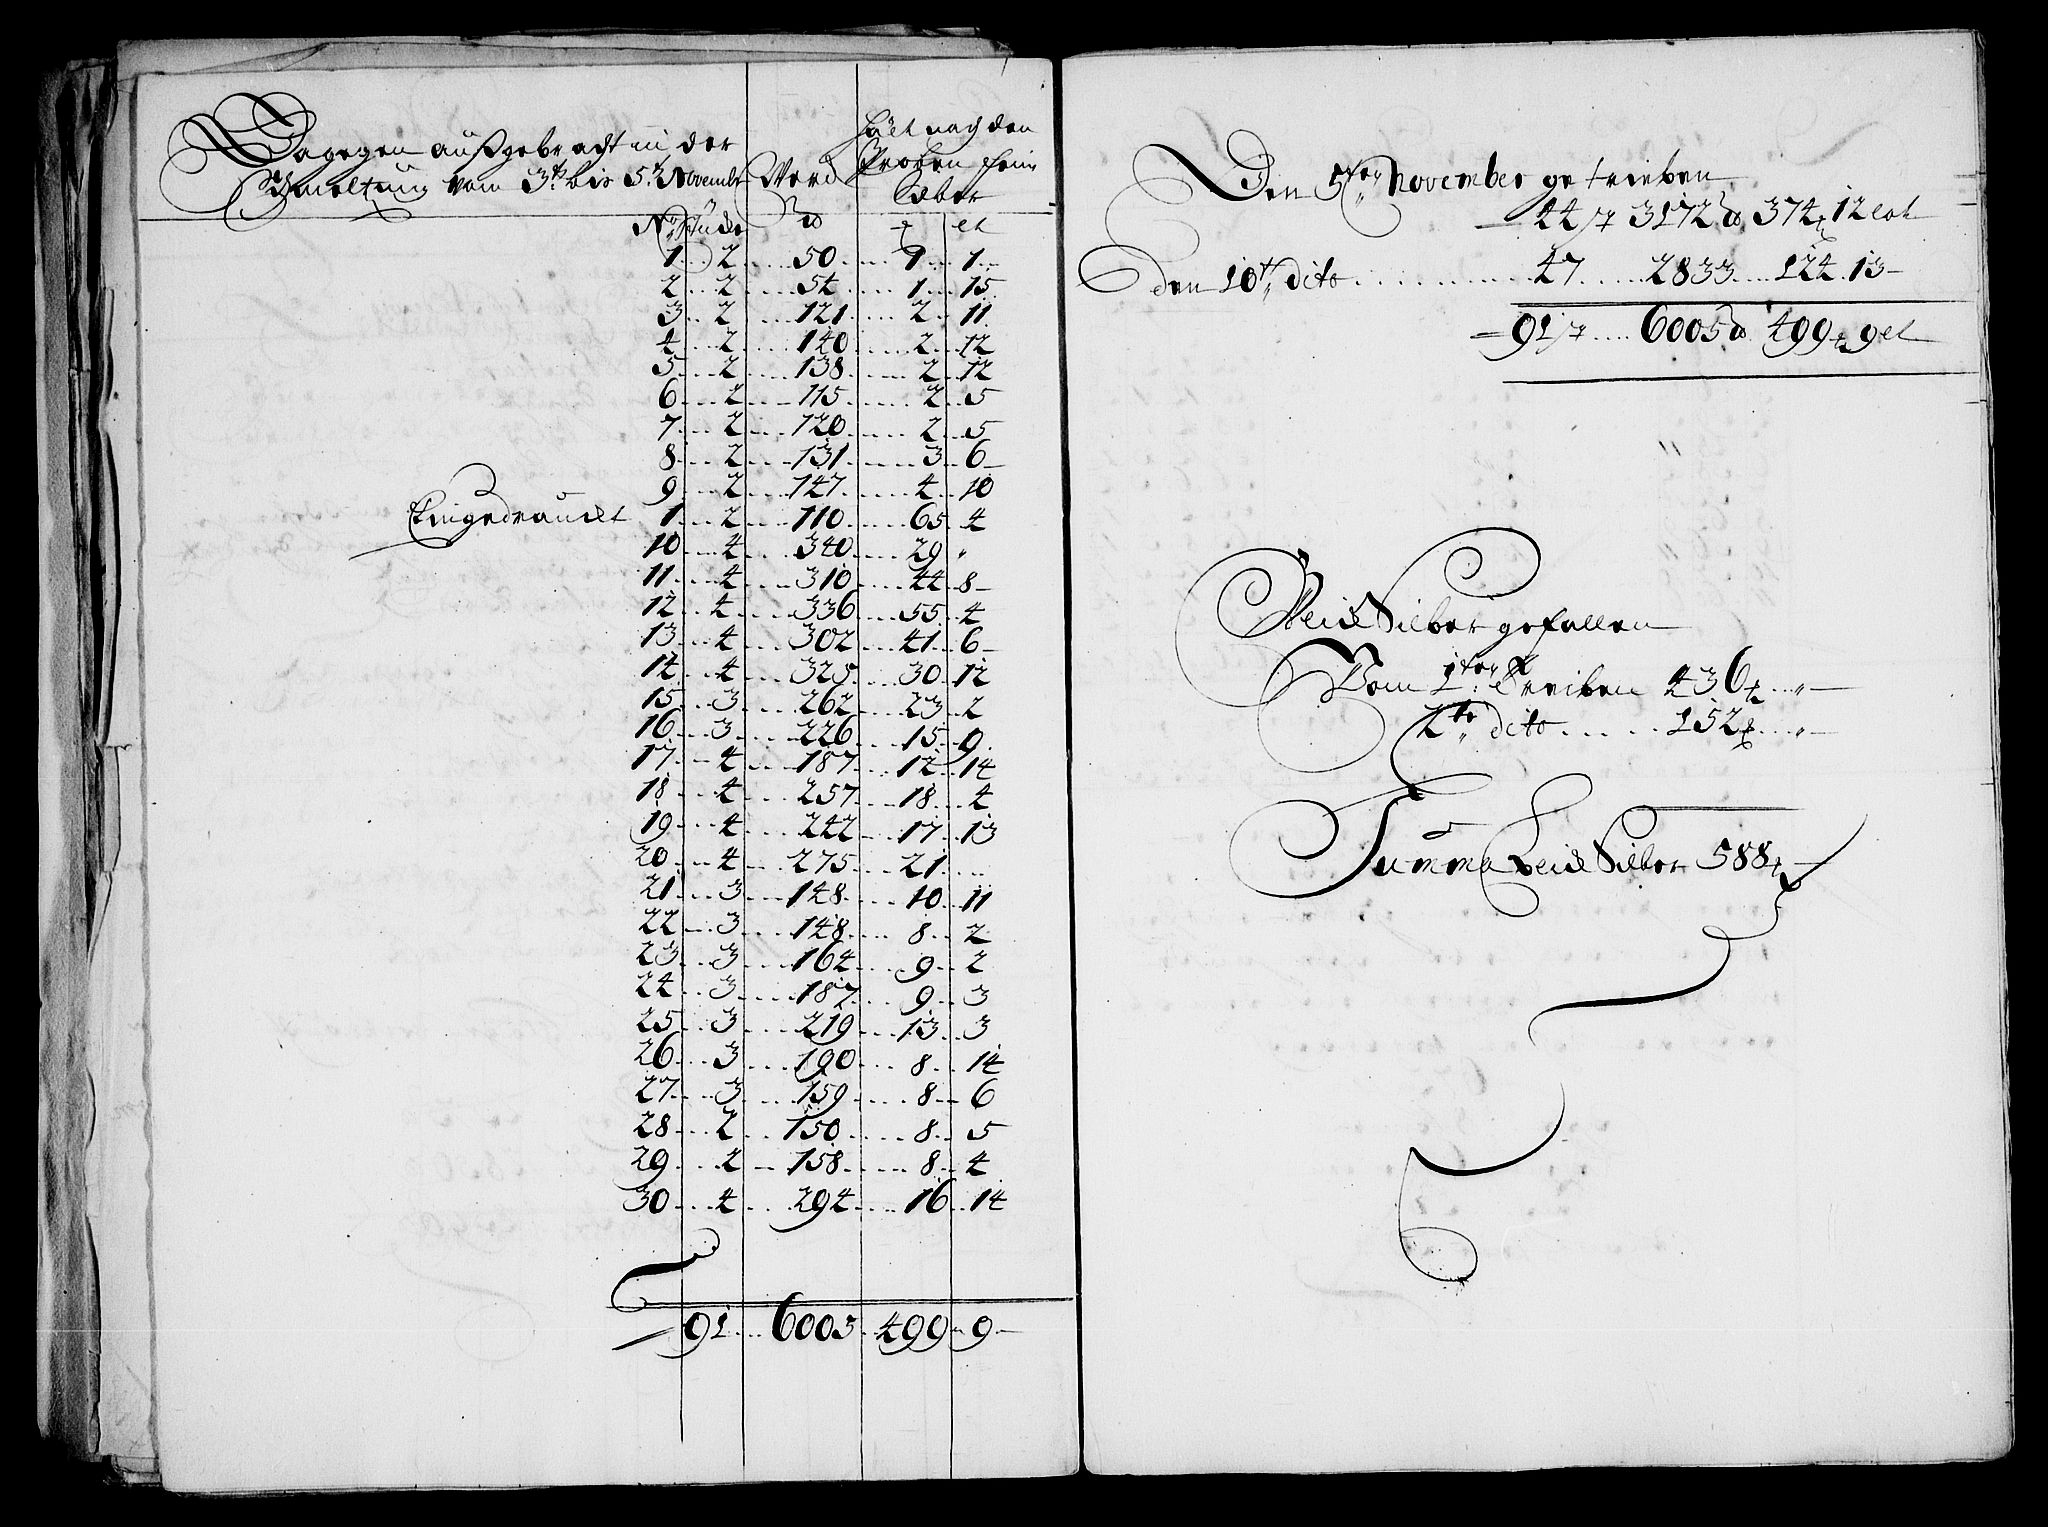 Dagegen außgebracht in der
Schmeltung vom 3t. bis 5.t November
Werck
Hält nach den
Proben fein
Silber
No: Stücke ℔ ₰ Lt
1 2 50 1 1
2 2 54 1 15
3 2 121 2 11
4 2 140 2 12
5 2 138 2 12
6 2 115 2 5
7 2 120 2 5
8 2 131 3 6
9 2 147 4 10
Eingedränckt 1 2 110 65 4
10 4 340 29 "
11 4 310 44 8
12 4 336 55 4
13 4 302 41 6
14 4 325 30 12
15 3 262 23 2
16 3 226 15 9
17 4 187 12 14
18 4 257 18 4
19 4 242 17 13
20 4 275 21
21 3 148 10 11
22 3 148 8 2
23 3 164 9 2
24 3 187 9 3
25 3 219 13 3
26 3 190 8 14
27 3 159 8 6
28 2 150 8 5
29 2 158 8 4
30 4 294 16 14
91 6005 499 9
Den 5ten November getrieben
44 3172 ℔ 374 12 Lot
den 10t. dito 47 2833 124 13
91 6005 ℔ 499 9 Lt
Blick Silber gefallen
Vom 1ten Treiben 436 "
2te dito 152 "
Summa Blick Silber 588